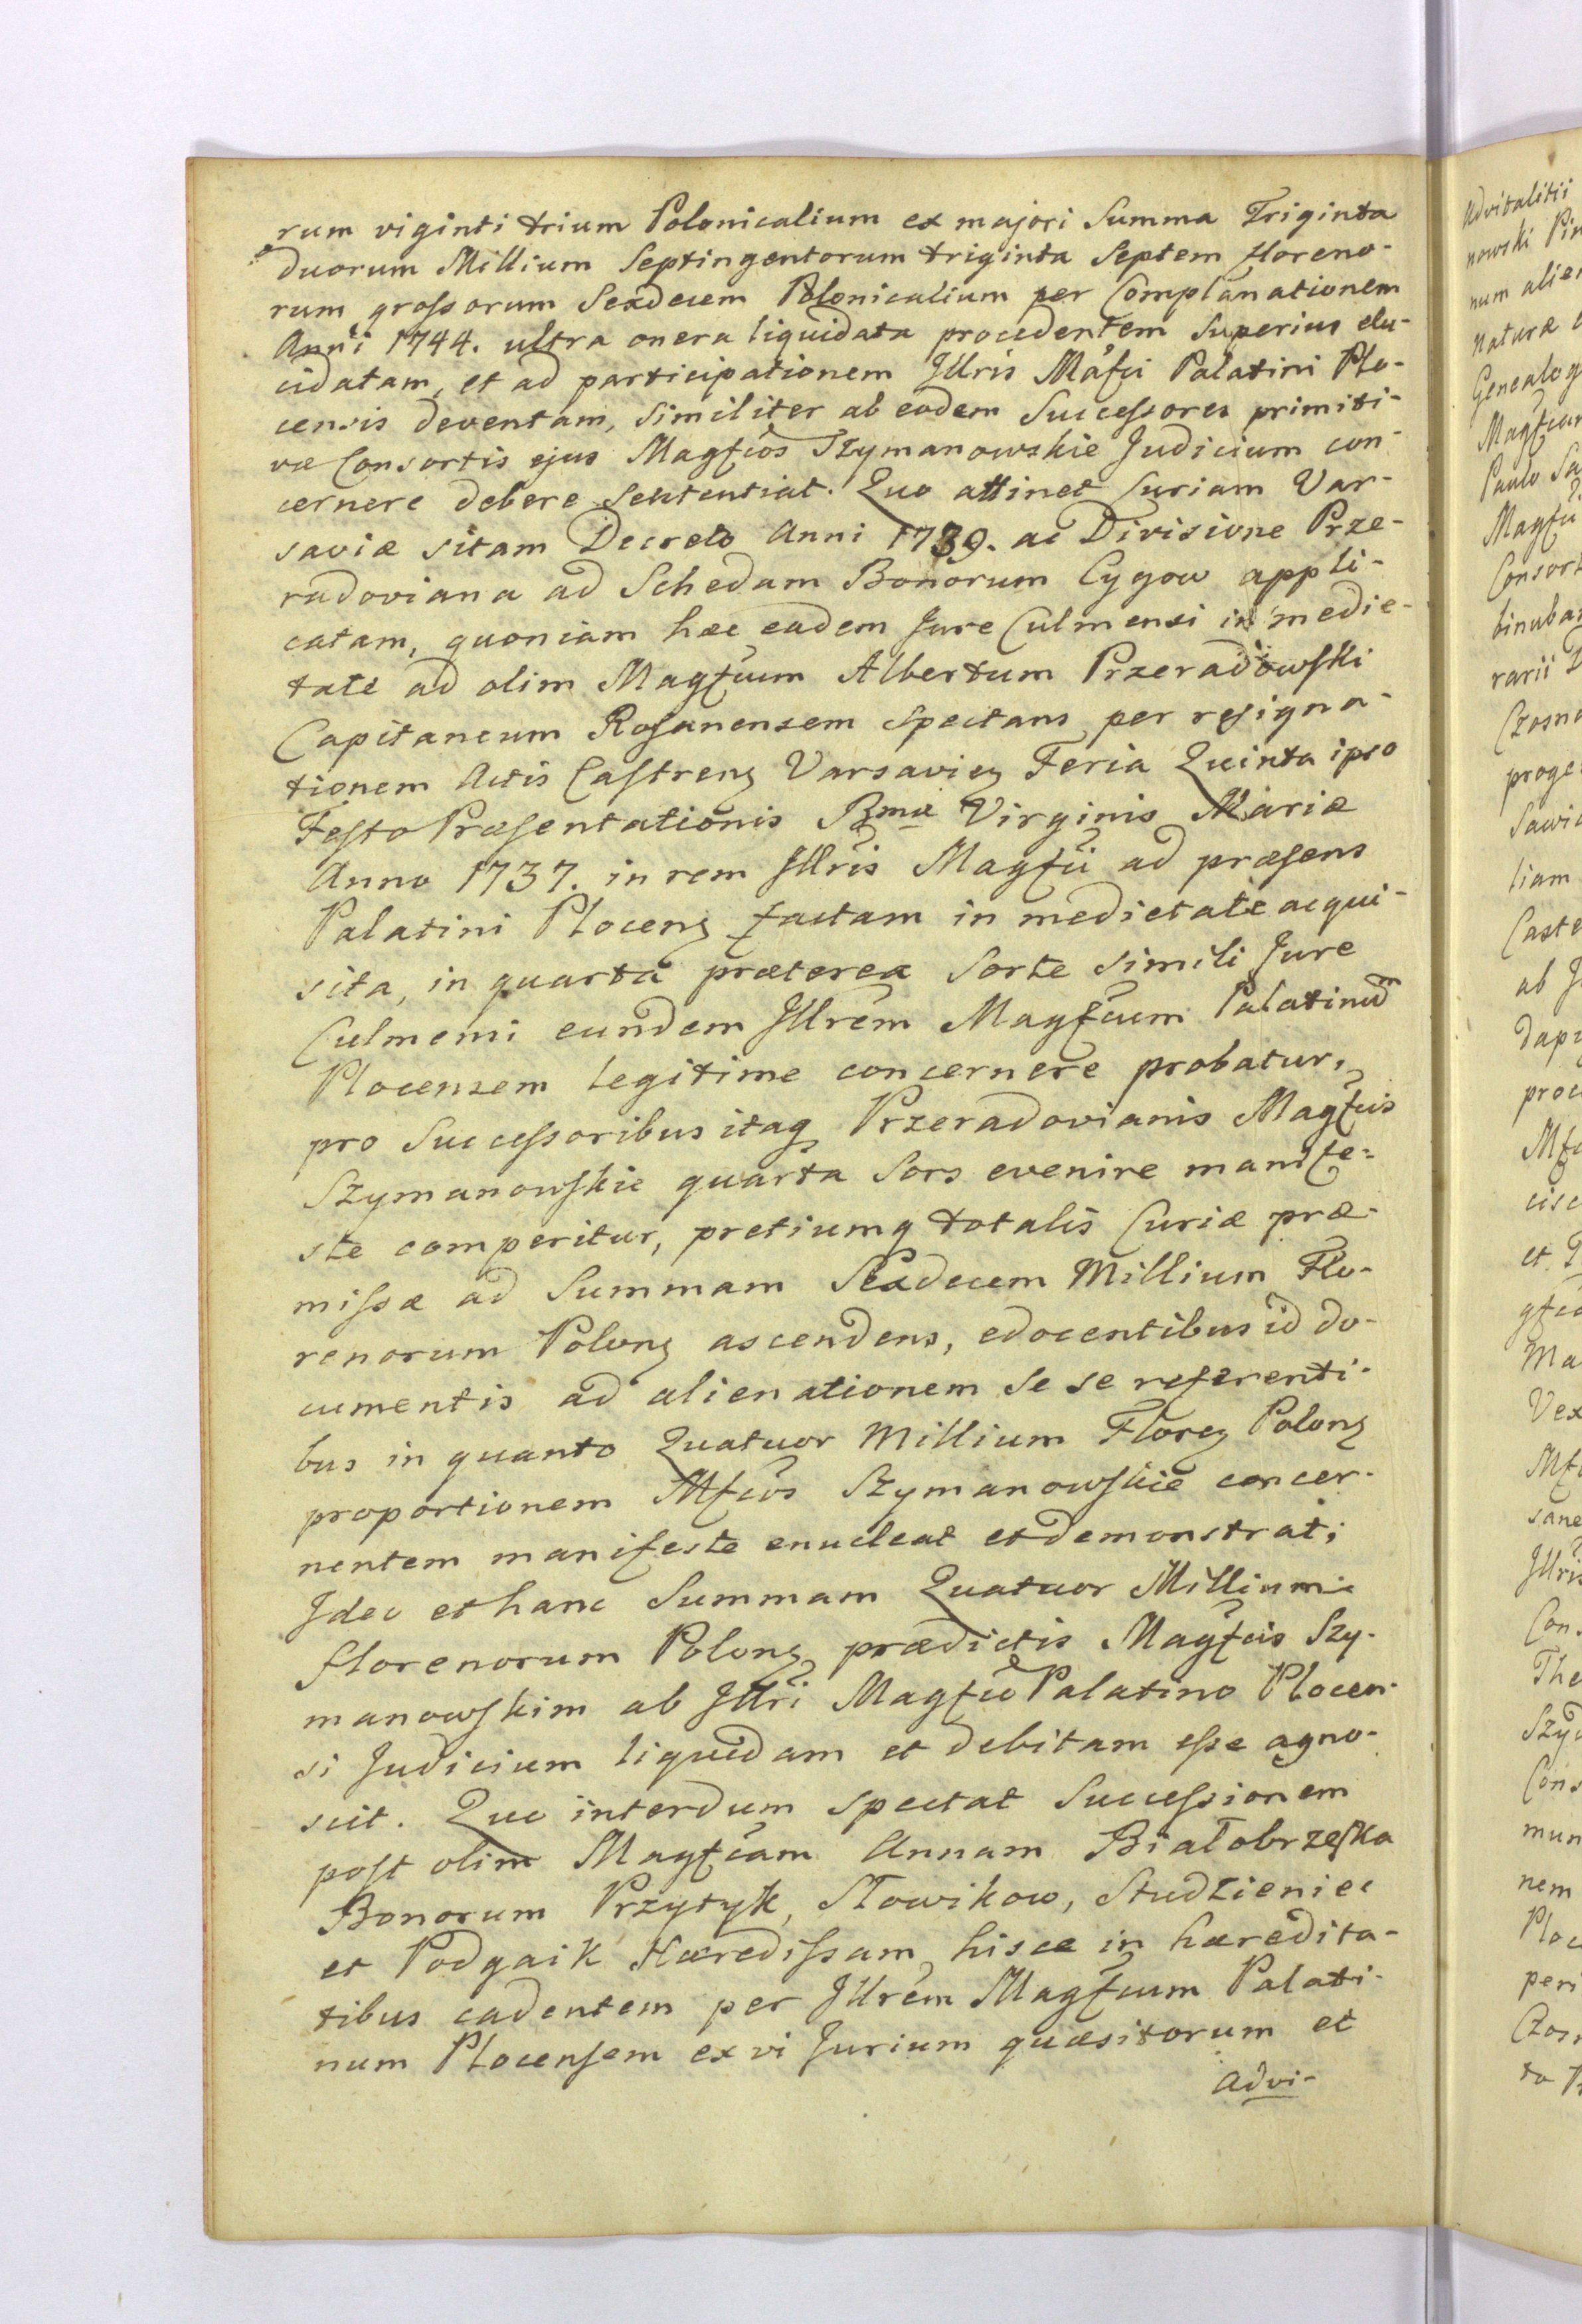 rum viginti trium Polonicalium ex majori Summa Triginta
duorum Millium Septingentorum triginta Septem floreno-
rum grossorum Sexdecem Polonicalium per Complanationem
Anni 1744. ultra onera liquidata procedentem Superius elu-
cidatam, et ad participationem Jllris Mafci Palatini Plo-
censis deventam, Similiter ab eodem Successores primiti-
væ Consortis ejus Magfcos Szymanowskie Judicium con-
cernere debere Sententiat. Quo attinet Curiam Var-
saviæ sitam Decreto Anni 1739. ac Divisione Prze-
radoviana ad Schedam Bonorum Cygow appli-
catam, quoniam hæc eadem Jure Culmensi in medie-
tate ad olim Magfcum Albertum Przeradowski
Capitaneum Rosanensem Spectans per resigna-
tionem Actis Castrens Varsavien Feria Quinta ipso
Festo Præsentationis Bmæ Virginis Mariæ
Anno 1737. in rem Jllris Magfci ad præsens
Palatini Plocens factam in medietate acqui-
sita, in quarta præterea Sorte Simili Jure
Culmensi eundem Jllrem Magfcum Palatinum
Plocensem legitime concernere probatur,
pro Successoribus itaq Przeradovianis Magfcis
Szymanowskie quarta Sors evenire manife-
ste comperitur, pretiumq totalis Curiæ præ-
missæ ad Summam Sexdecem Millium Flo-
renorum Polong ascendens, edocentibus id do-
cumentis ad alienationem Se se referenti-
bus in quanto Quatuor Millium Floreg Polong
proportionem Mfcos Szymanowskie concer-
nentem manifeste enucleat et demonstrat;
Jdeo et hanc Summam Quatuor Millium
florenorum Polong prædictis Magfcis Szy-
manowskim ab Jllri Magfco Palatino Plocen-
si Judicium liquidam et debitam esse agno-
scit. Quo interdum Spectat Successionem
post olim Magfcam Annam Białobrzeska
Bonorum Przytyk, Słowikow, Studzieniec
et Podgaik Hæredissam, hisce in hæredita-
tibus cadentem per Jllrem Magfcum Palati-
num Plocensem ex vi Jurium quæsitorum et
advi-
advitalitii
nowski
num alie
naturæ
Genealog
Magfcu
Paulo
Magfci
Consort
binuba
rarii
Czosno
proge
Sawi
liam
Caste
ab
dapi
proc
Mfc
cisc
et
gfco
Ma
Vex
Mfc
sane
Jllris
Con
The
Szyd
Cons
mun
nem
Ploc
peri
Czos
to